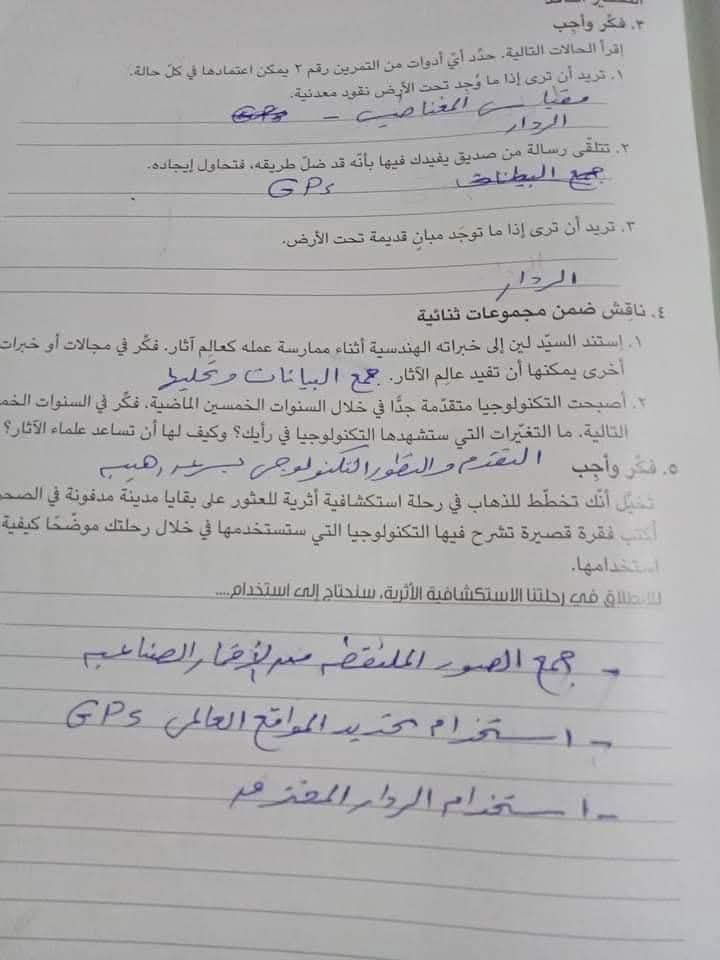 ٣. فكّر وأجِب
إقرأ الحالات التالية. حدّد أيّ أدوات من التمرين رقم ٢ يمكن اعتمادها في كلّ حالة.
١. تريد أن ترى إذا ما وُجد تحت الأرض نقود معدنية.
مقياس المغناطيس - GPS
الردار
٢. تتلقّى رسالة من صديق يفيدك فيها بأنّه قد ضلّ طريقه، فتحاول إيجاده.
جمع البيانات GPS
٣. تريد أن ترى إذا ما توجَد مبانٍ قديمة تحت الأرض.
الردار
٤. ناقِش ضمن مجموعات ثنائية
١. إستند السيّد لين إلى خبراته الهندسية أثناء ممارسة عمله كعالِم آثار. فكّر في مجالات أو خبرات
أخرى يمكنها أن تفيد عالِم الآثار. جمع البيانات وتحليل
٢. أصبحت التكنولوجيا متقدّمة جدًّا في خلال السنوات الخمسين الماضية. فكّر في السنوات
التالية. ما التغيّرات التي ستشهدها التكنولوجيا في رأيك؟ وكيف لها أن تساعد علماء الآثار؟
التقدم والتطور التكنولوجى بسرعه رهيبه
٥. فكّر وأجِب
تخيّل أنّك تخطّط للذهاب في رحلة استكشافية أثرية للعثور على بقايا مدينة مدفونة في
أكتب فقرة قصيرة تشرح فيها التكنولوجيا التي ستستخدمها في خلال رحلتك موضّحًا كيفية
استخدامها.
للانطلاق في رحلتنا الاستكشافية الأثرية، سنحتاج إلى استخدام....
- جمع الصور الملتقطه من الأقمار الصناعيه
- استخدام تحديد المواقع العالمى GPS
- استخدام الردار